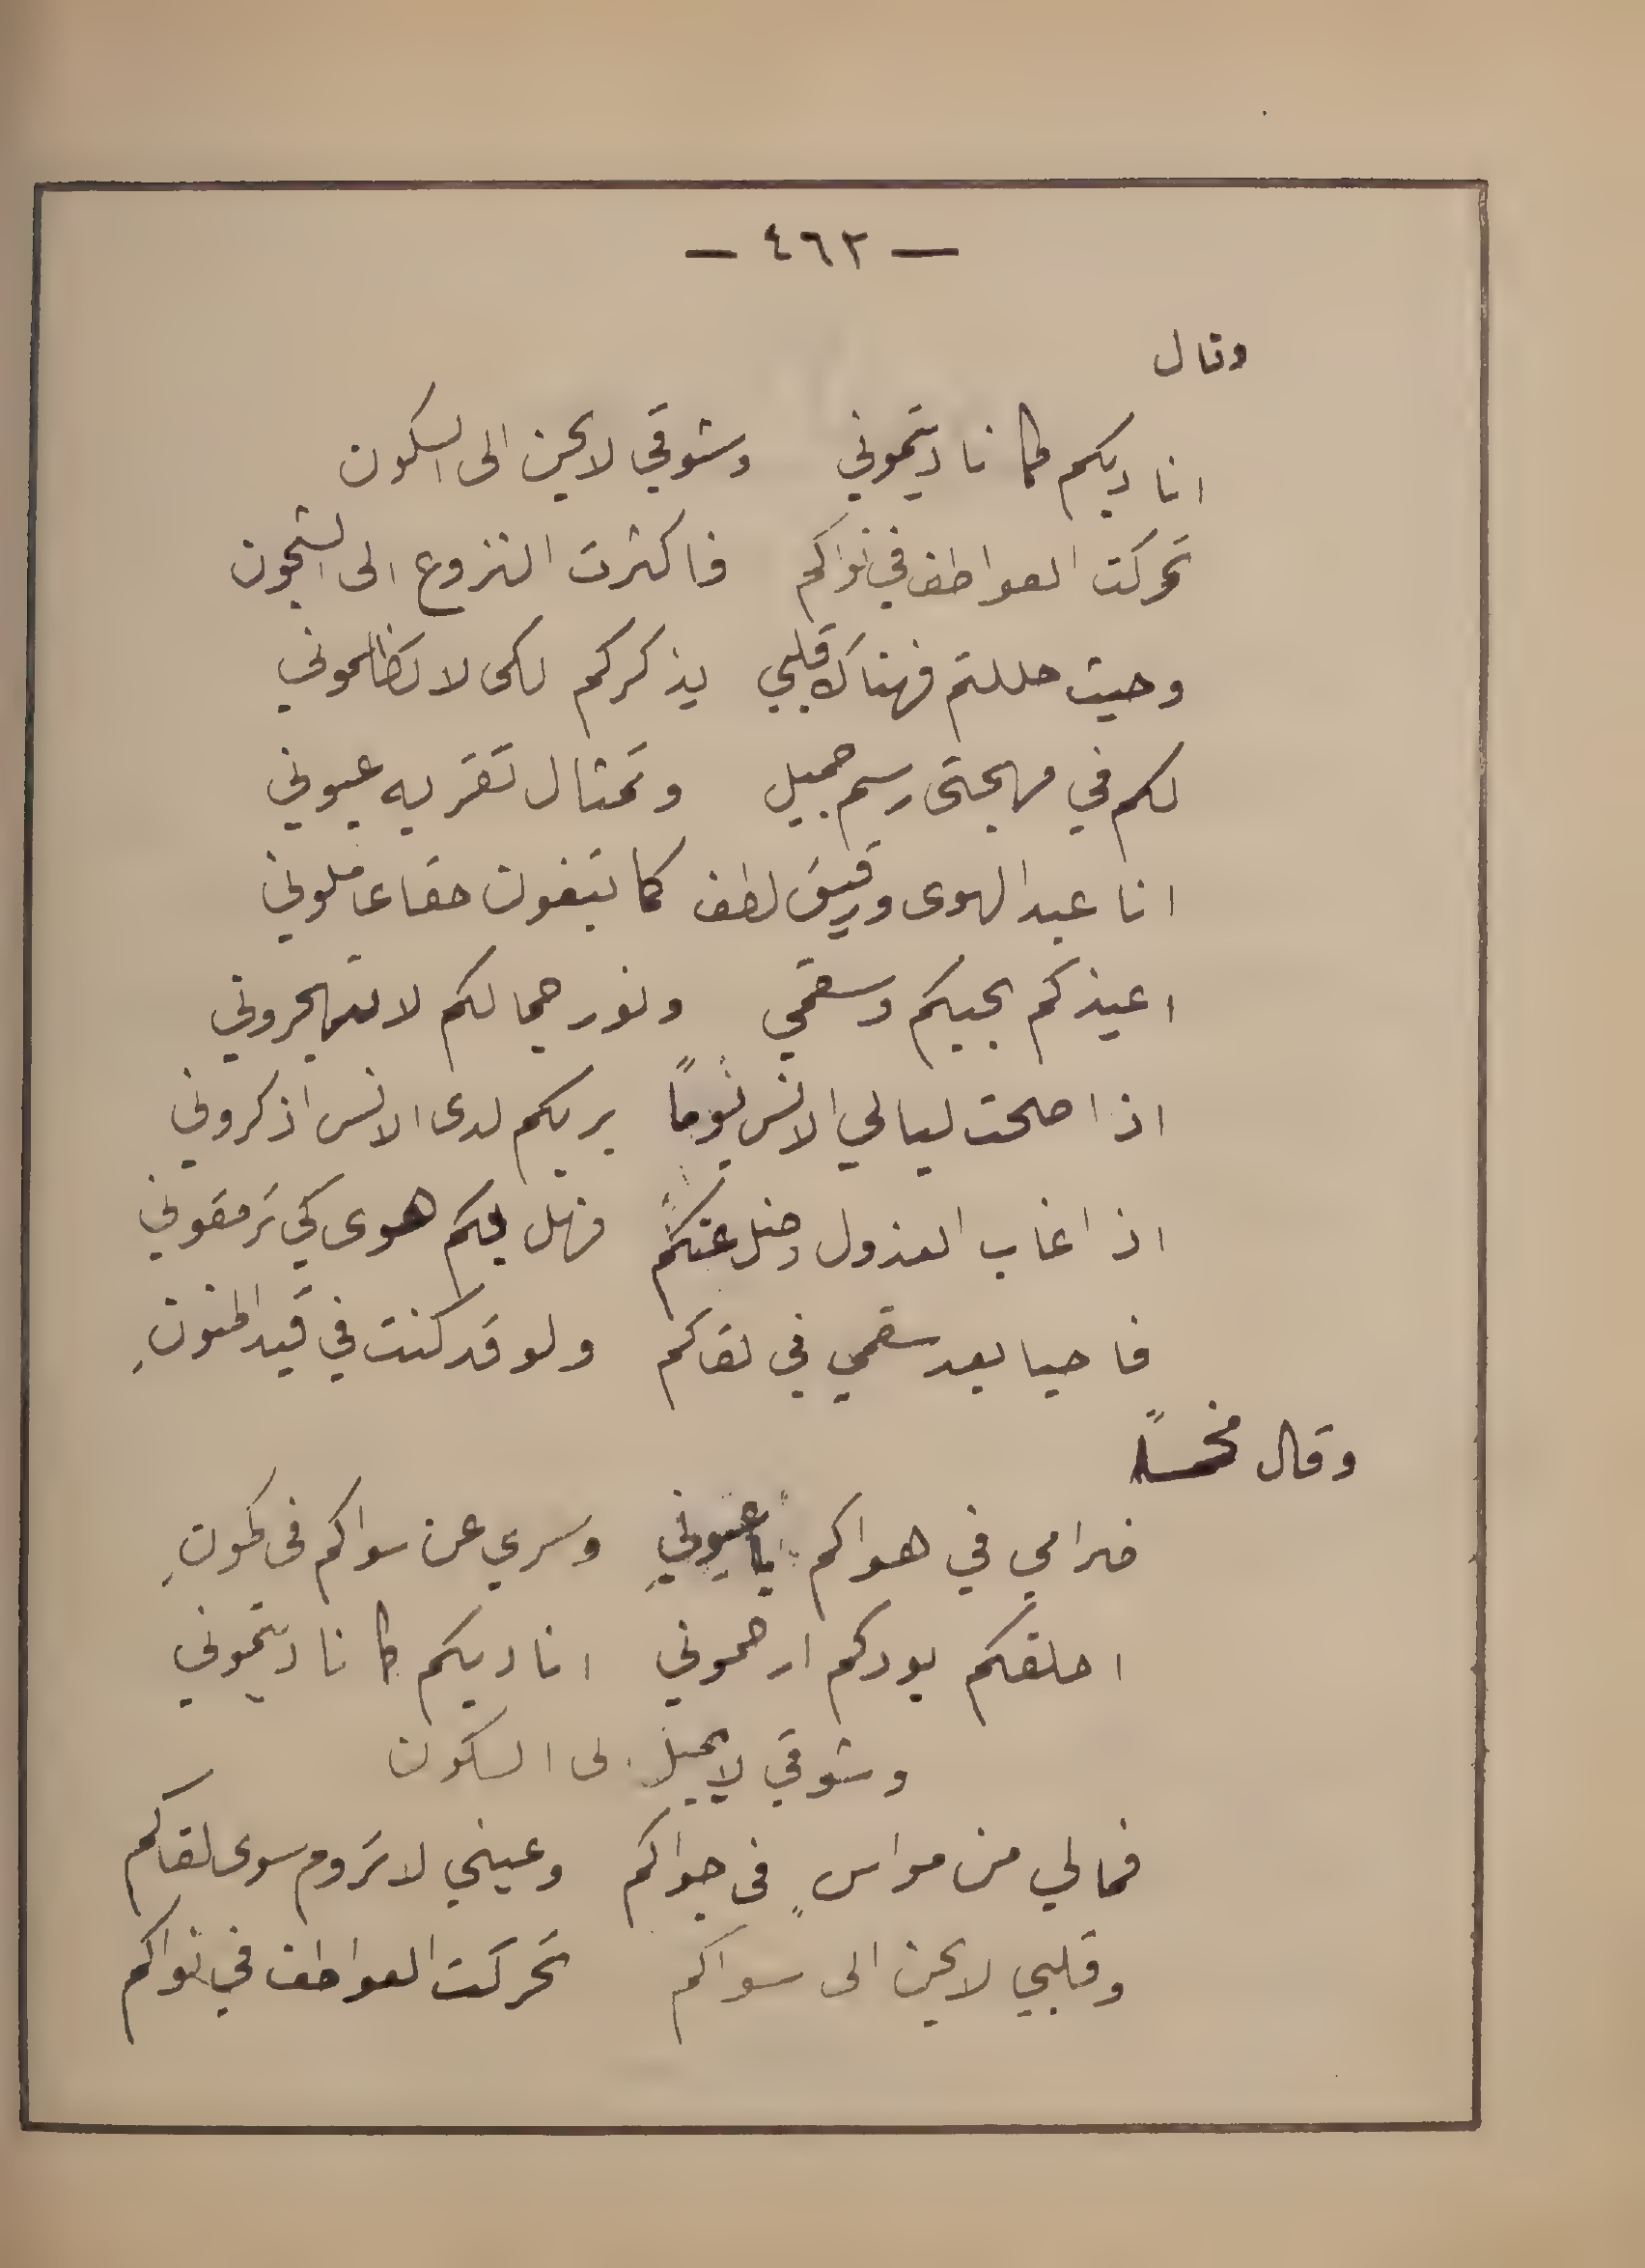 — ٤٦٢ —
وقال
اناديكم كما ناديتموني وشوقي لا يحن الى السكون
تحركت العواطف في نواكم فاكثرت النزوع الى الشجون
وحيث حللتم فهناك قلبي يذكركم لكى لا تظلموني
لكم في مهجتى رسم جميل وتمثال تقر به عيوني
انا عبد الهوى ورقيق لطف كما تبغون حقا عاملوني
اعيذكم بحبكم وسقمي ونور جمالكم لا تهجروني
اذا اضحت ليالي الانس يوماً بربكم لدى الانس اذكروني
اذا غاب العذول وضل عنكم فهل بكم هوى كي ترمقوني
فاحيا بعد سقمي في لقاكم ولو قد كنت في قيد المنونِ
وقال مخمساً
غرامي في هواكم يا عيوني وسري عن سواكم فى كمونِ
احلفكم بودكم ارحموني اناديكم كما ناديتموني
وشوقي لا يميل الى السكون
فما لي من مواسٍ فى جواكم وعيني لا تروم سوى لقاكم
وقلبي لا يحن الى سواكم تحركت العواطف في نواكم